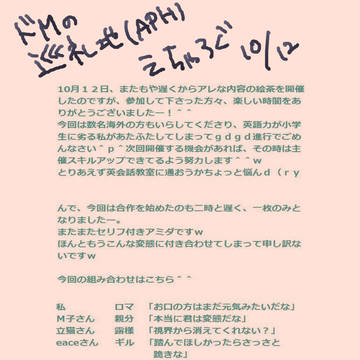 ドMの
巡礼地(APH)
えちゃろぐ
10/12
10月12日、またもや遅くからアレな内容の絵茶を開催
したのですが、参加して下さった方々、楽しい時間をあ
りがとうございましたー！＾＾
今回は数名海外の方もいらしてくださり、英語力が小学
生に劣る私があたふたしてしまってgdgd進行でごめ
んなさい＾p＾次回開催する機会があれば、その時は主
催スキルアップできてるよう努力します＾＾w
とりあえず英会話教室に通おうかちょっと悩んd（ry
んで、今回は合作を始めたのも二時と遅く、一枚のみと
なりましたー。
またまたセリフ付きアミダですw
ほんともうこんな変態に付き合わせてしまって申し訳な
いですw
今回の組み合わせはこちら＾＾
私　ロマ　「お口の方はまだ元気みたいだな」
M子さん　親分　「本当に君は変態だな」
立猫さん　露様　「視界から消えてくれない？」
eaceさん　ギル　「踏んでほしかったらさっさと
跪きな」